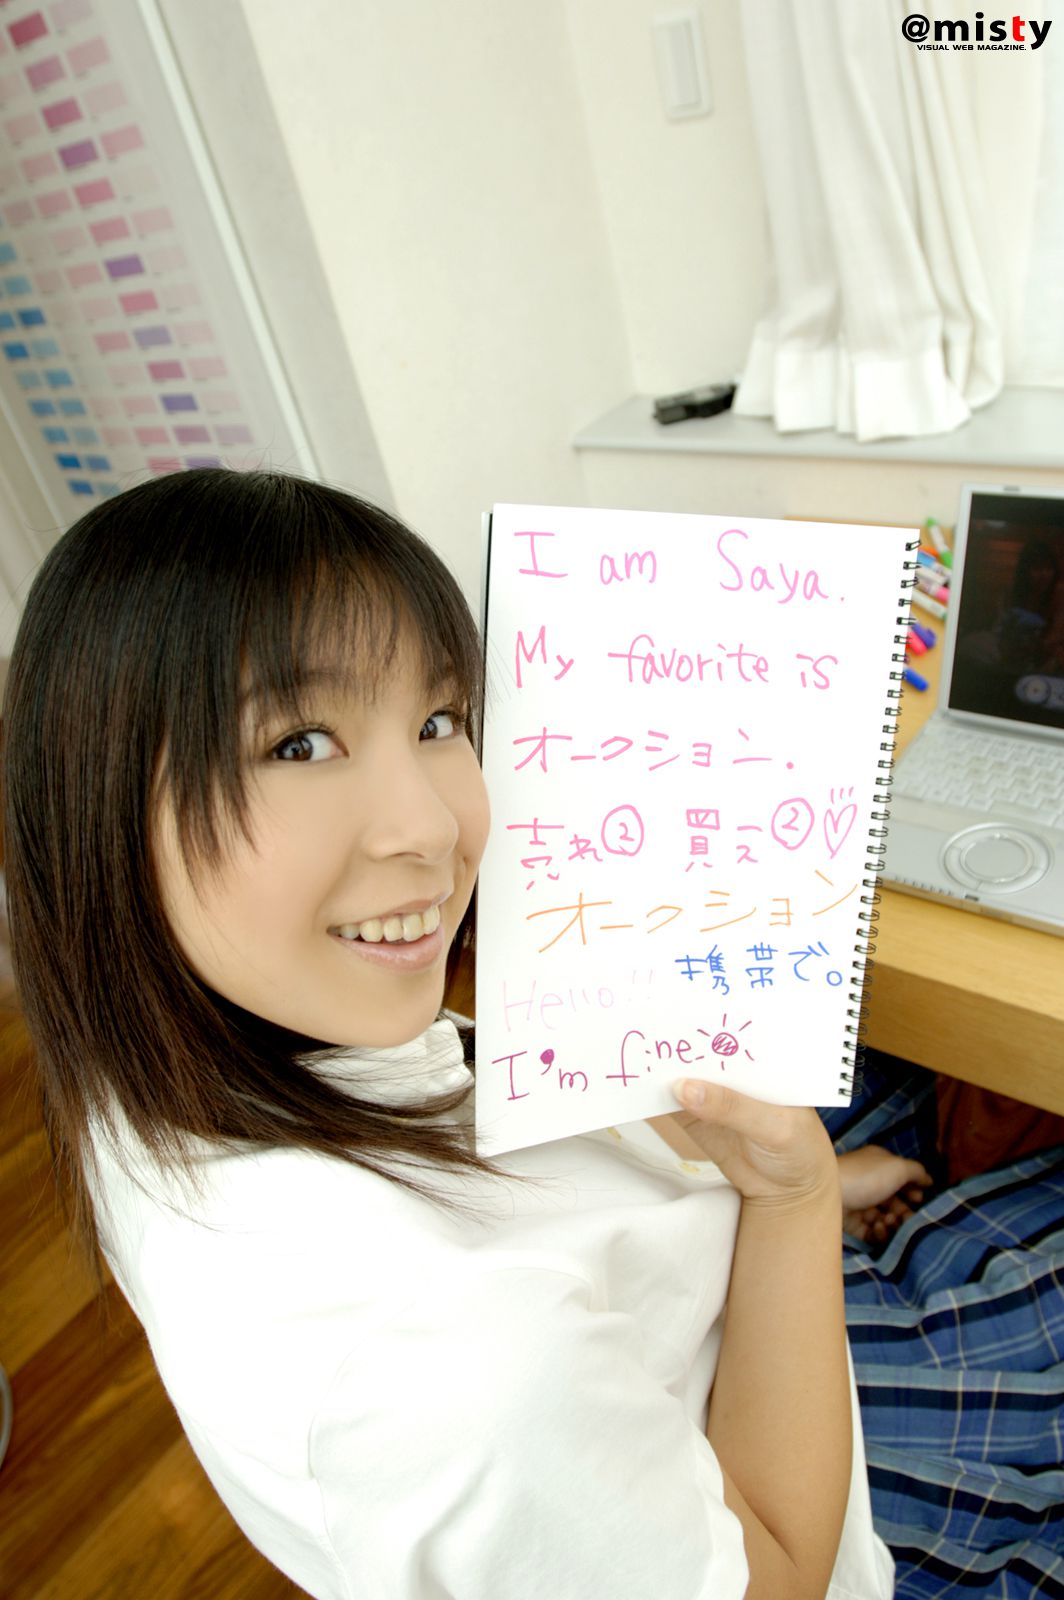 @misty
VISUAL WEB MAGAZINE.
I am Saya.
My favorite is
オークション.
売れ② 買え②♡
オークション
携帯で。
Hello!!
I'm fine